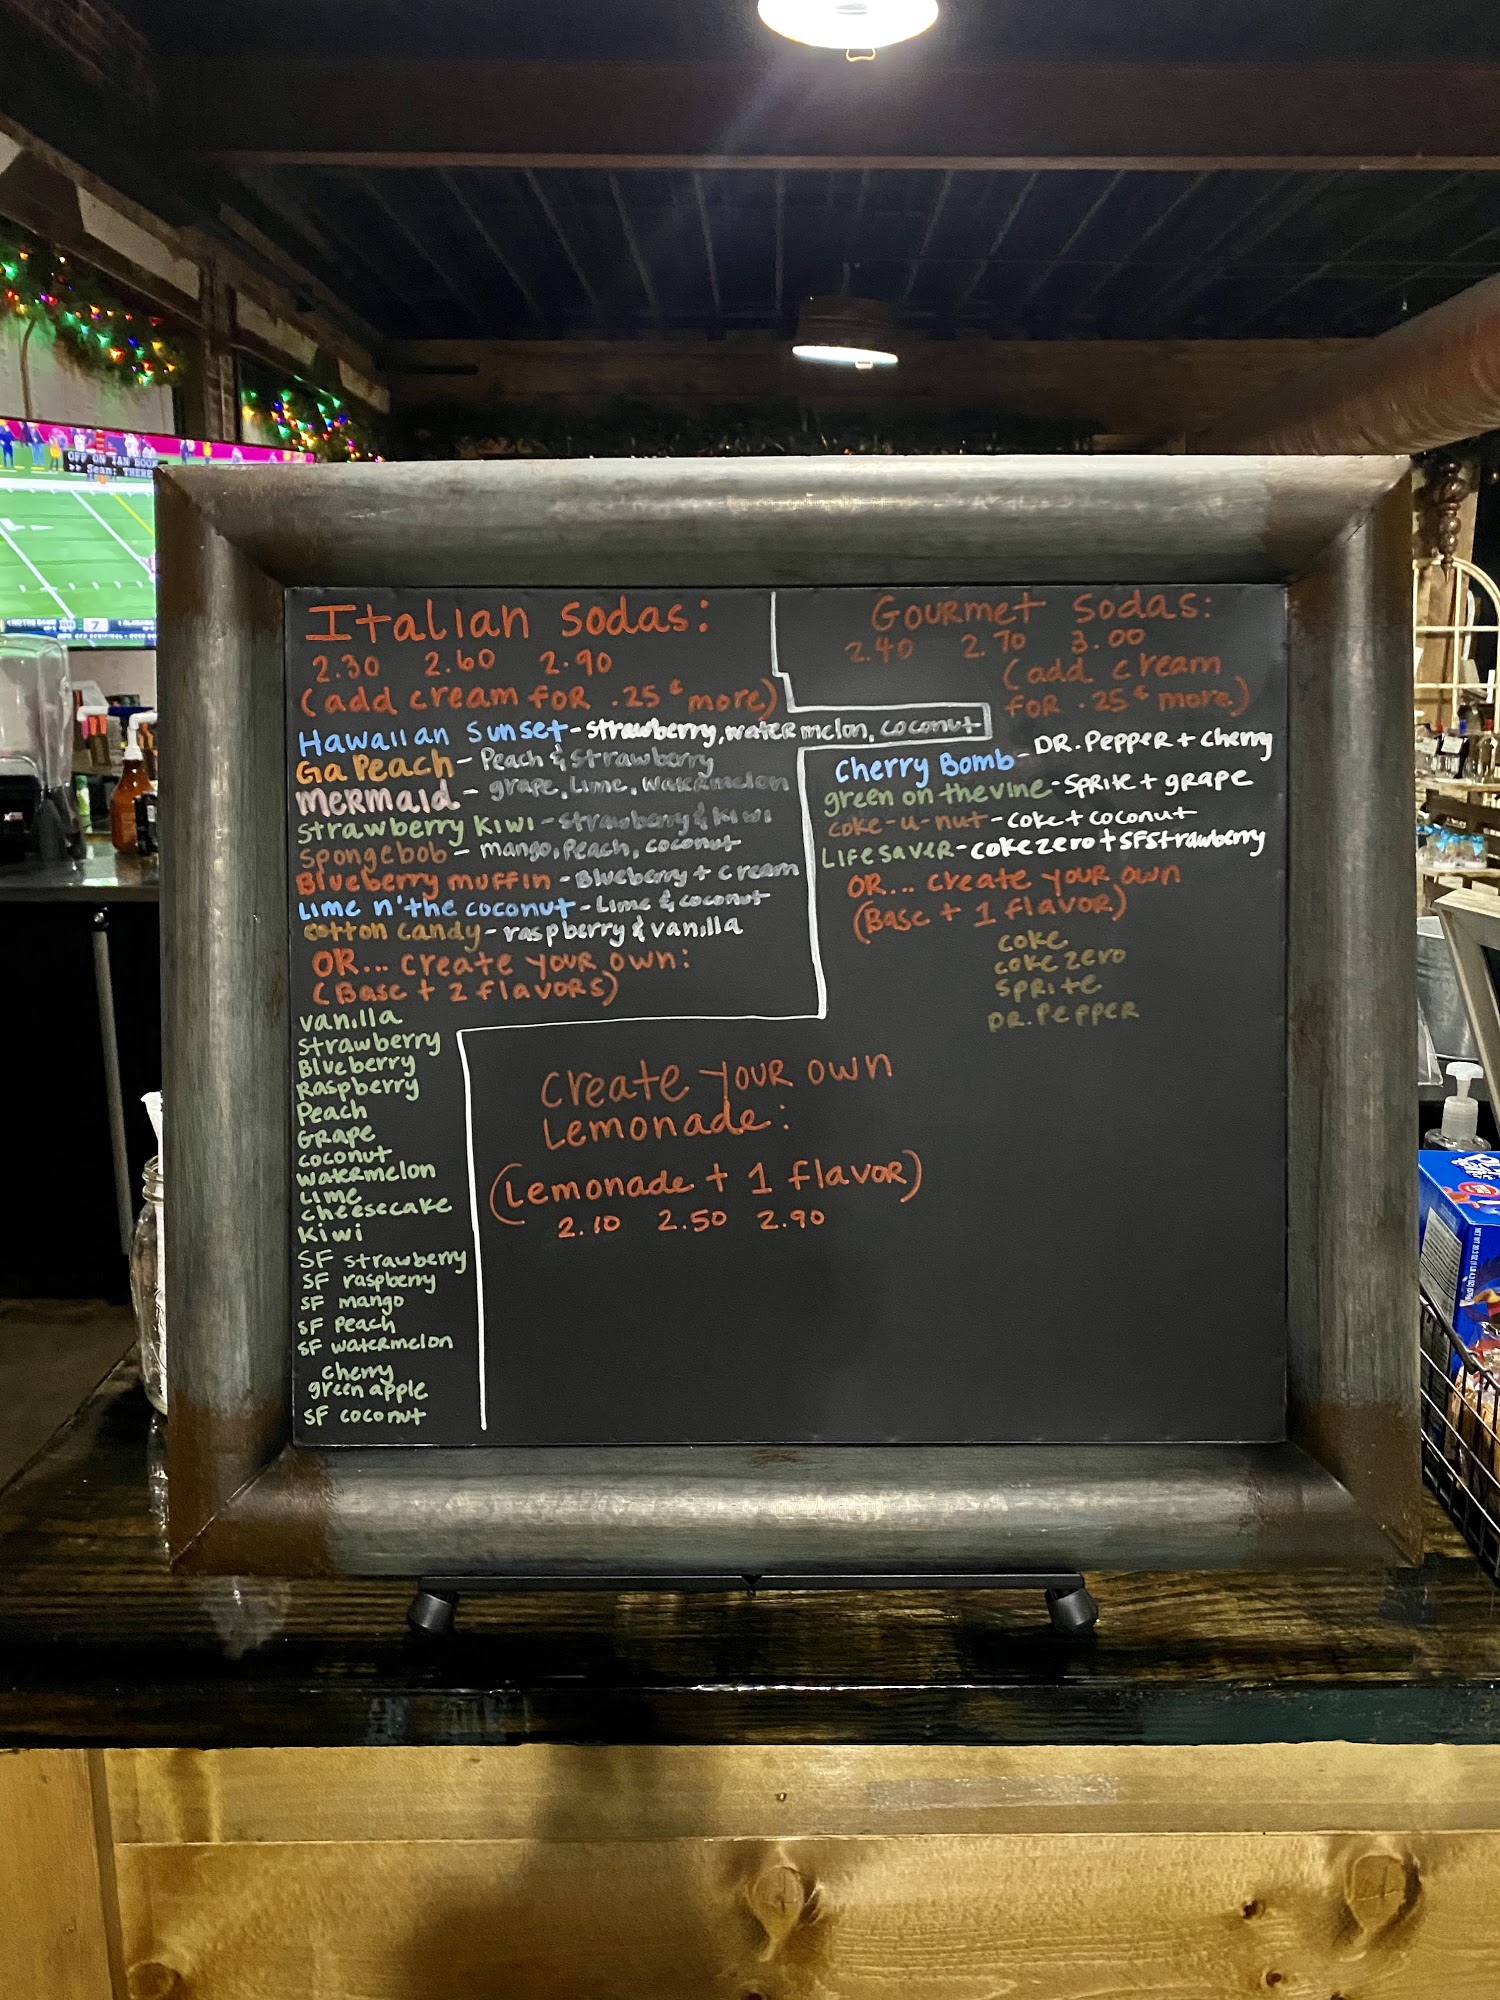 Italian Sodas:
2.30 2.60 2.90
(add cream for .25¢ more)
Hawaiian Sunset - strawberry, watermelon, coconut
Ga Peach - Peach & Strawberry
Mermaid - grape, Lime, watermelon
Strawberry Kiwi - Strawberry & Kiwi
Spongebob - mango, Peach, coconut
Blueberry muffin - Blueberry + cream
Lime n' the coconut - Lime & coconut
cotton candy - raspberry & vanilla
OR... create your own:
(Base + 2 flavors)
vanilla
strawberry
Blueberry
Raspberry
Peach
Grape
coconut
watermelon
Lime
cheesecake
kiwi
SF strawberry
SF raspberry
SF mango
SF Peach
SF watermelon
cherry
green apple
SF coconut
Gourmet Sodas:
2.40 2.70 3.00
(add cream
for .25¢ more)
Cherry Bomb - DR. Pepper + Cherry
green on the vine - Sprite + grape
coke-u-nut - coke + coconut
Lifesaver - coke zero + SF Strawberry
OR... create your own
(Base + 1 flavor)
coke
coke zero
sprite
DR. Pepper
Create your own
Lemonade:
(Lemonade + 1 flavor)
2.10 2.50 2.90
OFF ON IAN BOOK
>> Sean: THERE
NOTRE DAME
7
1 ALABAMA